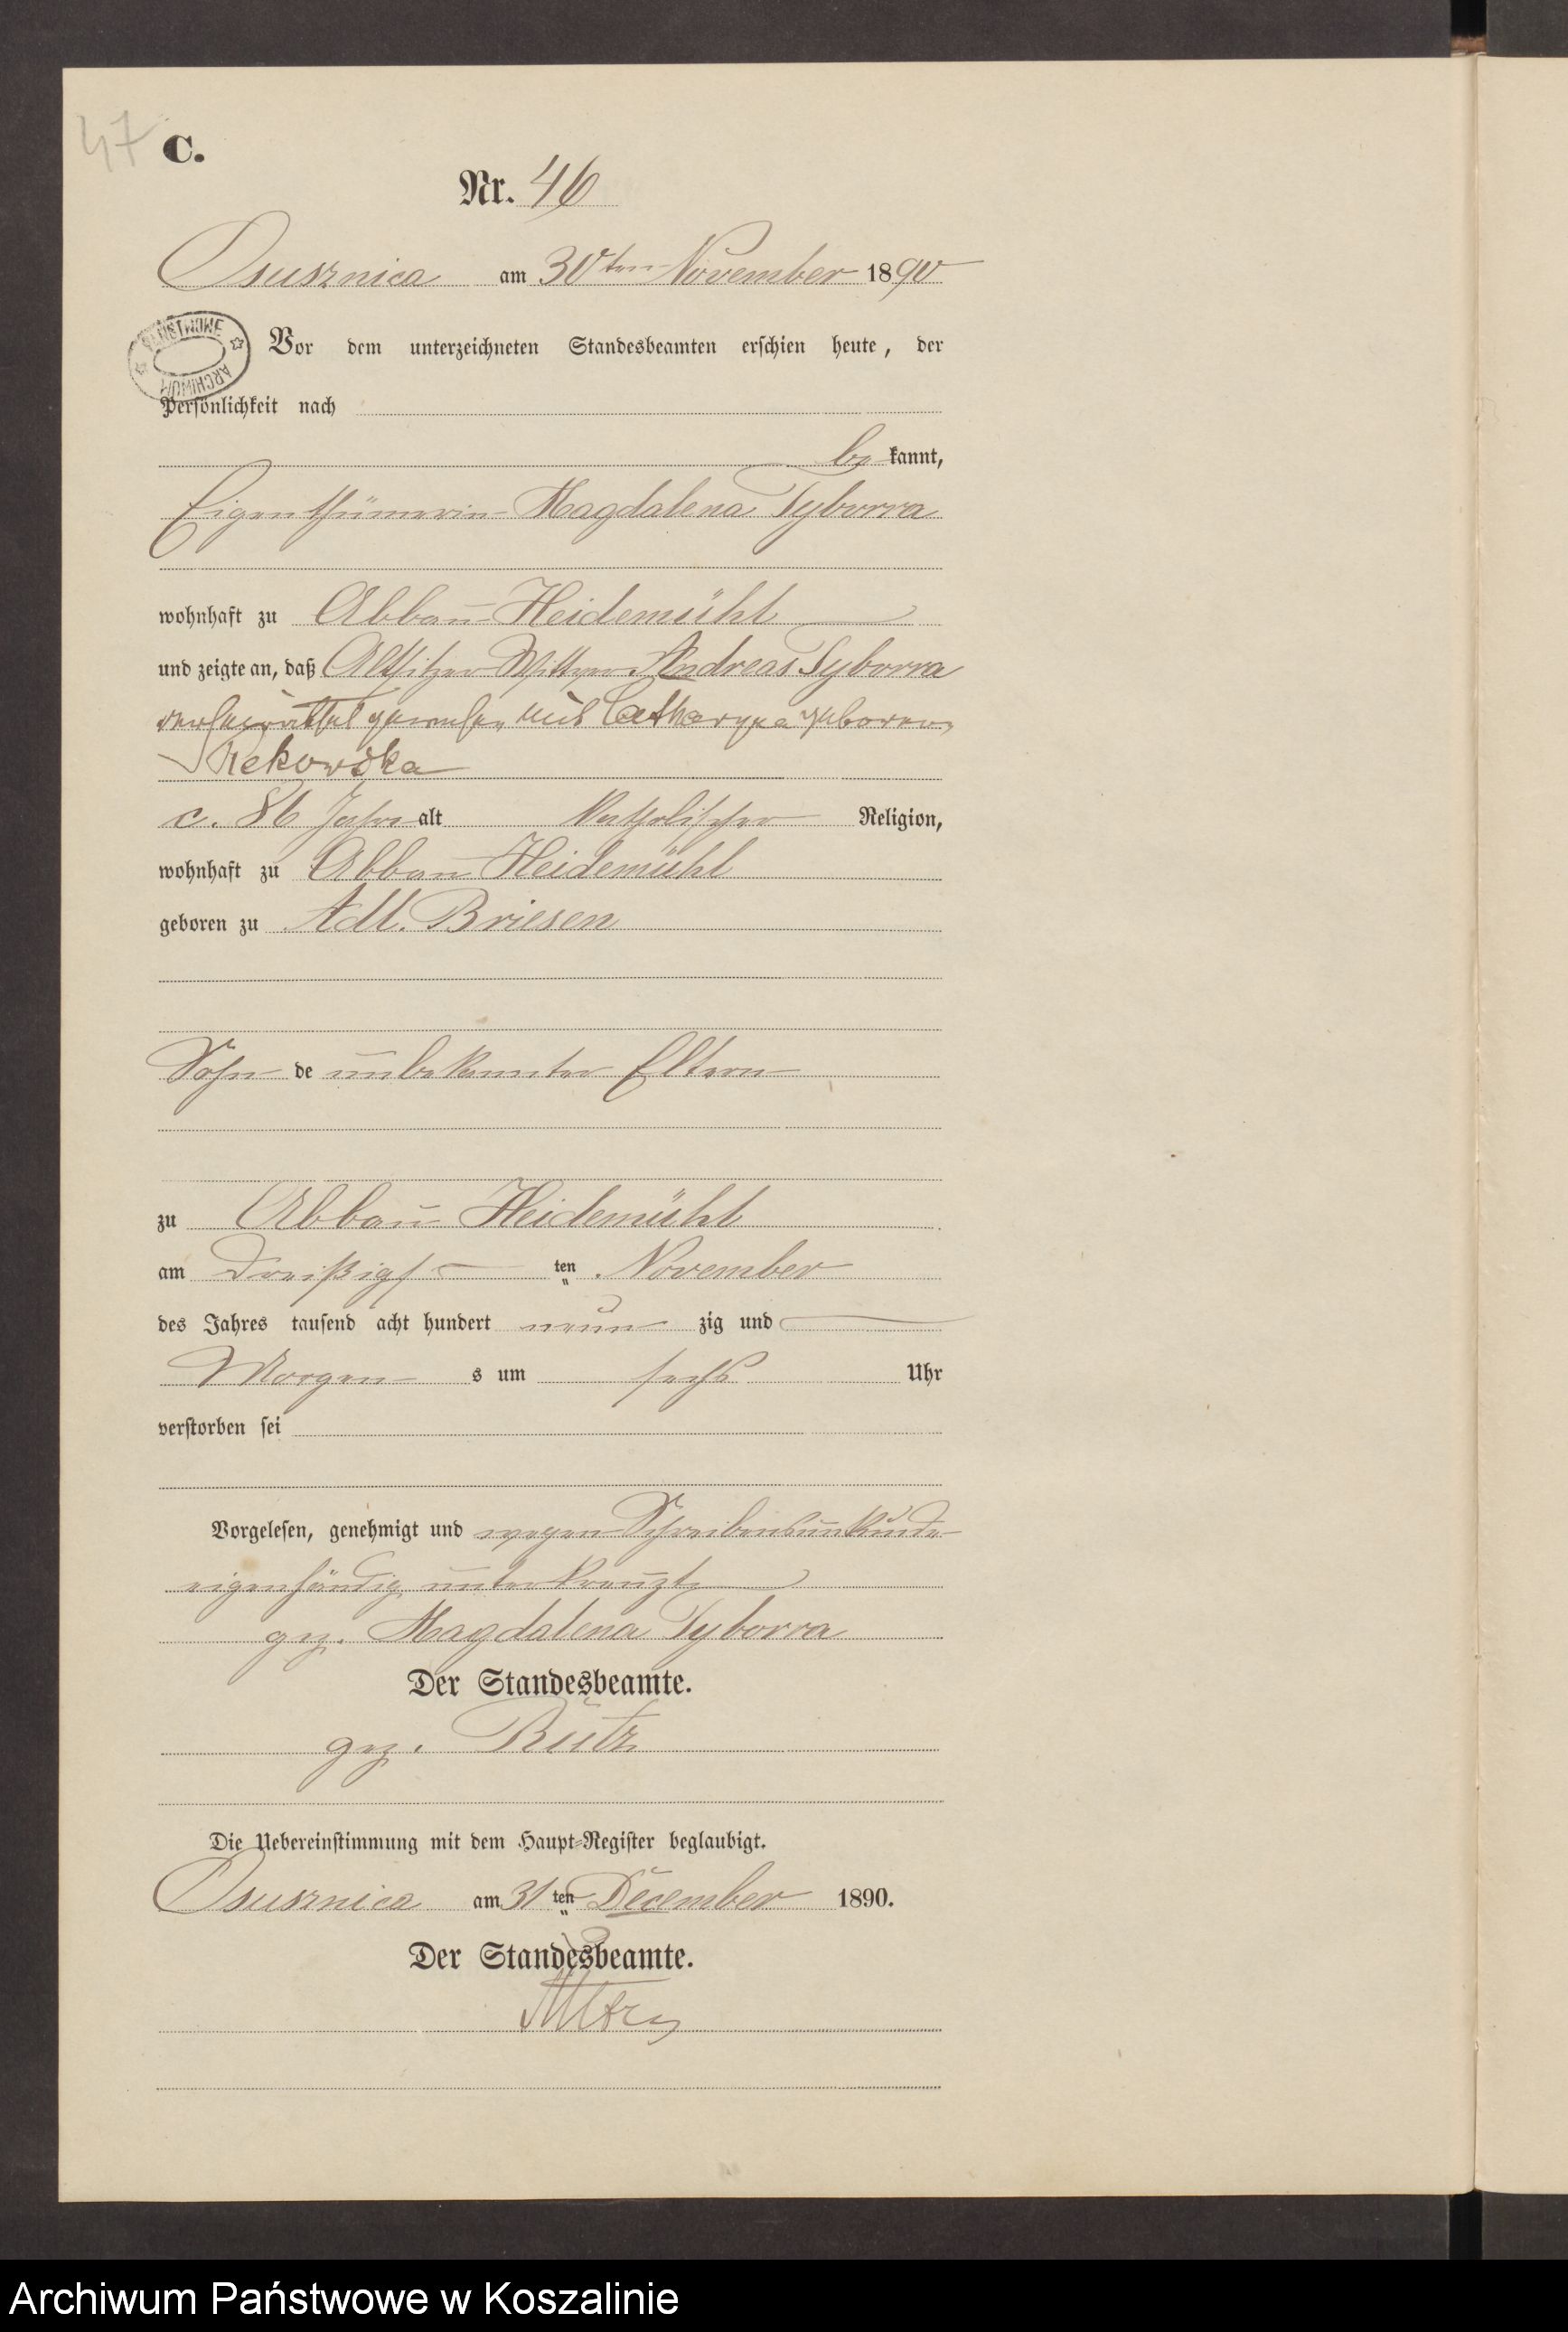 47
C.
Nr. 46
Osusznica am 30ten November 1890
PAŃSTWOWE
ARCHIWUM
Vor dem unterzeichneten Standesbeamten erschien heute, der
Persönlichkeit nach
be kannt,
Eigenthümerin Magdalena Tyborra
wohnhaft zu Abbau Heidemühl
und zeigte an, daß Altsitzer Wittwer Andreas Tyborra
verheirathet gewesen mit Catharyna geborene
Rekowska
c. 86 Jahre alt katholischer Religion,
wohnhaft zu Abbau Heidemühl
geboren zu Adl. Briesen
Sohn de unbekannter Eltern
zu Abbau Heidemühl
am Dreißigs ten November
des Jahres tausend acht hundert neun zig und
Morgen s um sechs Uhr
verstorben sei
Vorgelesen, genehmigt und wegen Schreibensunkunde
eigenhändig unterkreuzt
gez. Magdalena Tyborra
Der Standesbeamte.
gez.
Die Uebereinstimmung mit dem Haupt-Register beglaubigt.
Osusznica am 31 ten December 1890.
Der Standesbeamte.
Archiwum Państwowe w Koszalinie